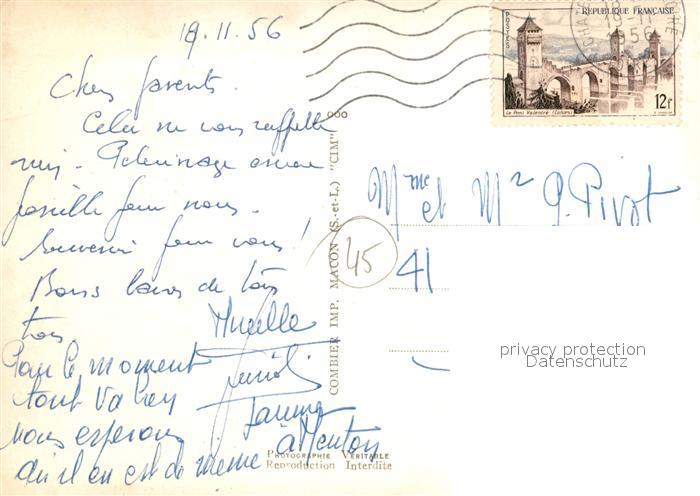 19.11.56
Chers parents.
Cela ne vous rappelle
rien. Pèlerinage encore
possible pour nous.
Souvenir pour vous!
Bons baisers de tous
trois.
Mireille
Pour le moment
tout va bien
Jeannot
nous espérons
qu'il en est de même à Menton
PHOTOGRAPHIE VÉRITABLE
Reproduction Interdite
COMBIER IMP. MACON (S.-et-L.) "CIM"
45
REPUBLIQUE FRANÇAISE
POSTES
Le Pont Valentré (Cahors)
12f
19-11
1956
Mme et Mr P. Pivot
41
privacy protection
Datenschutz